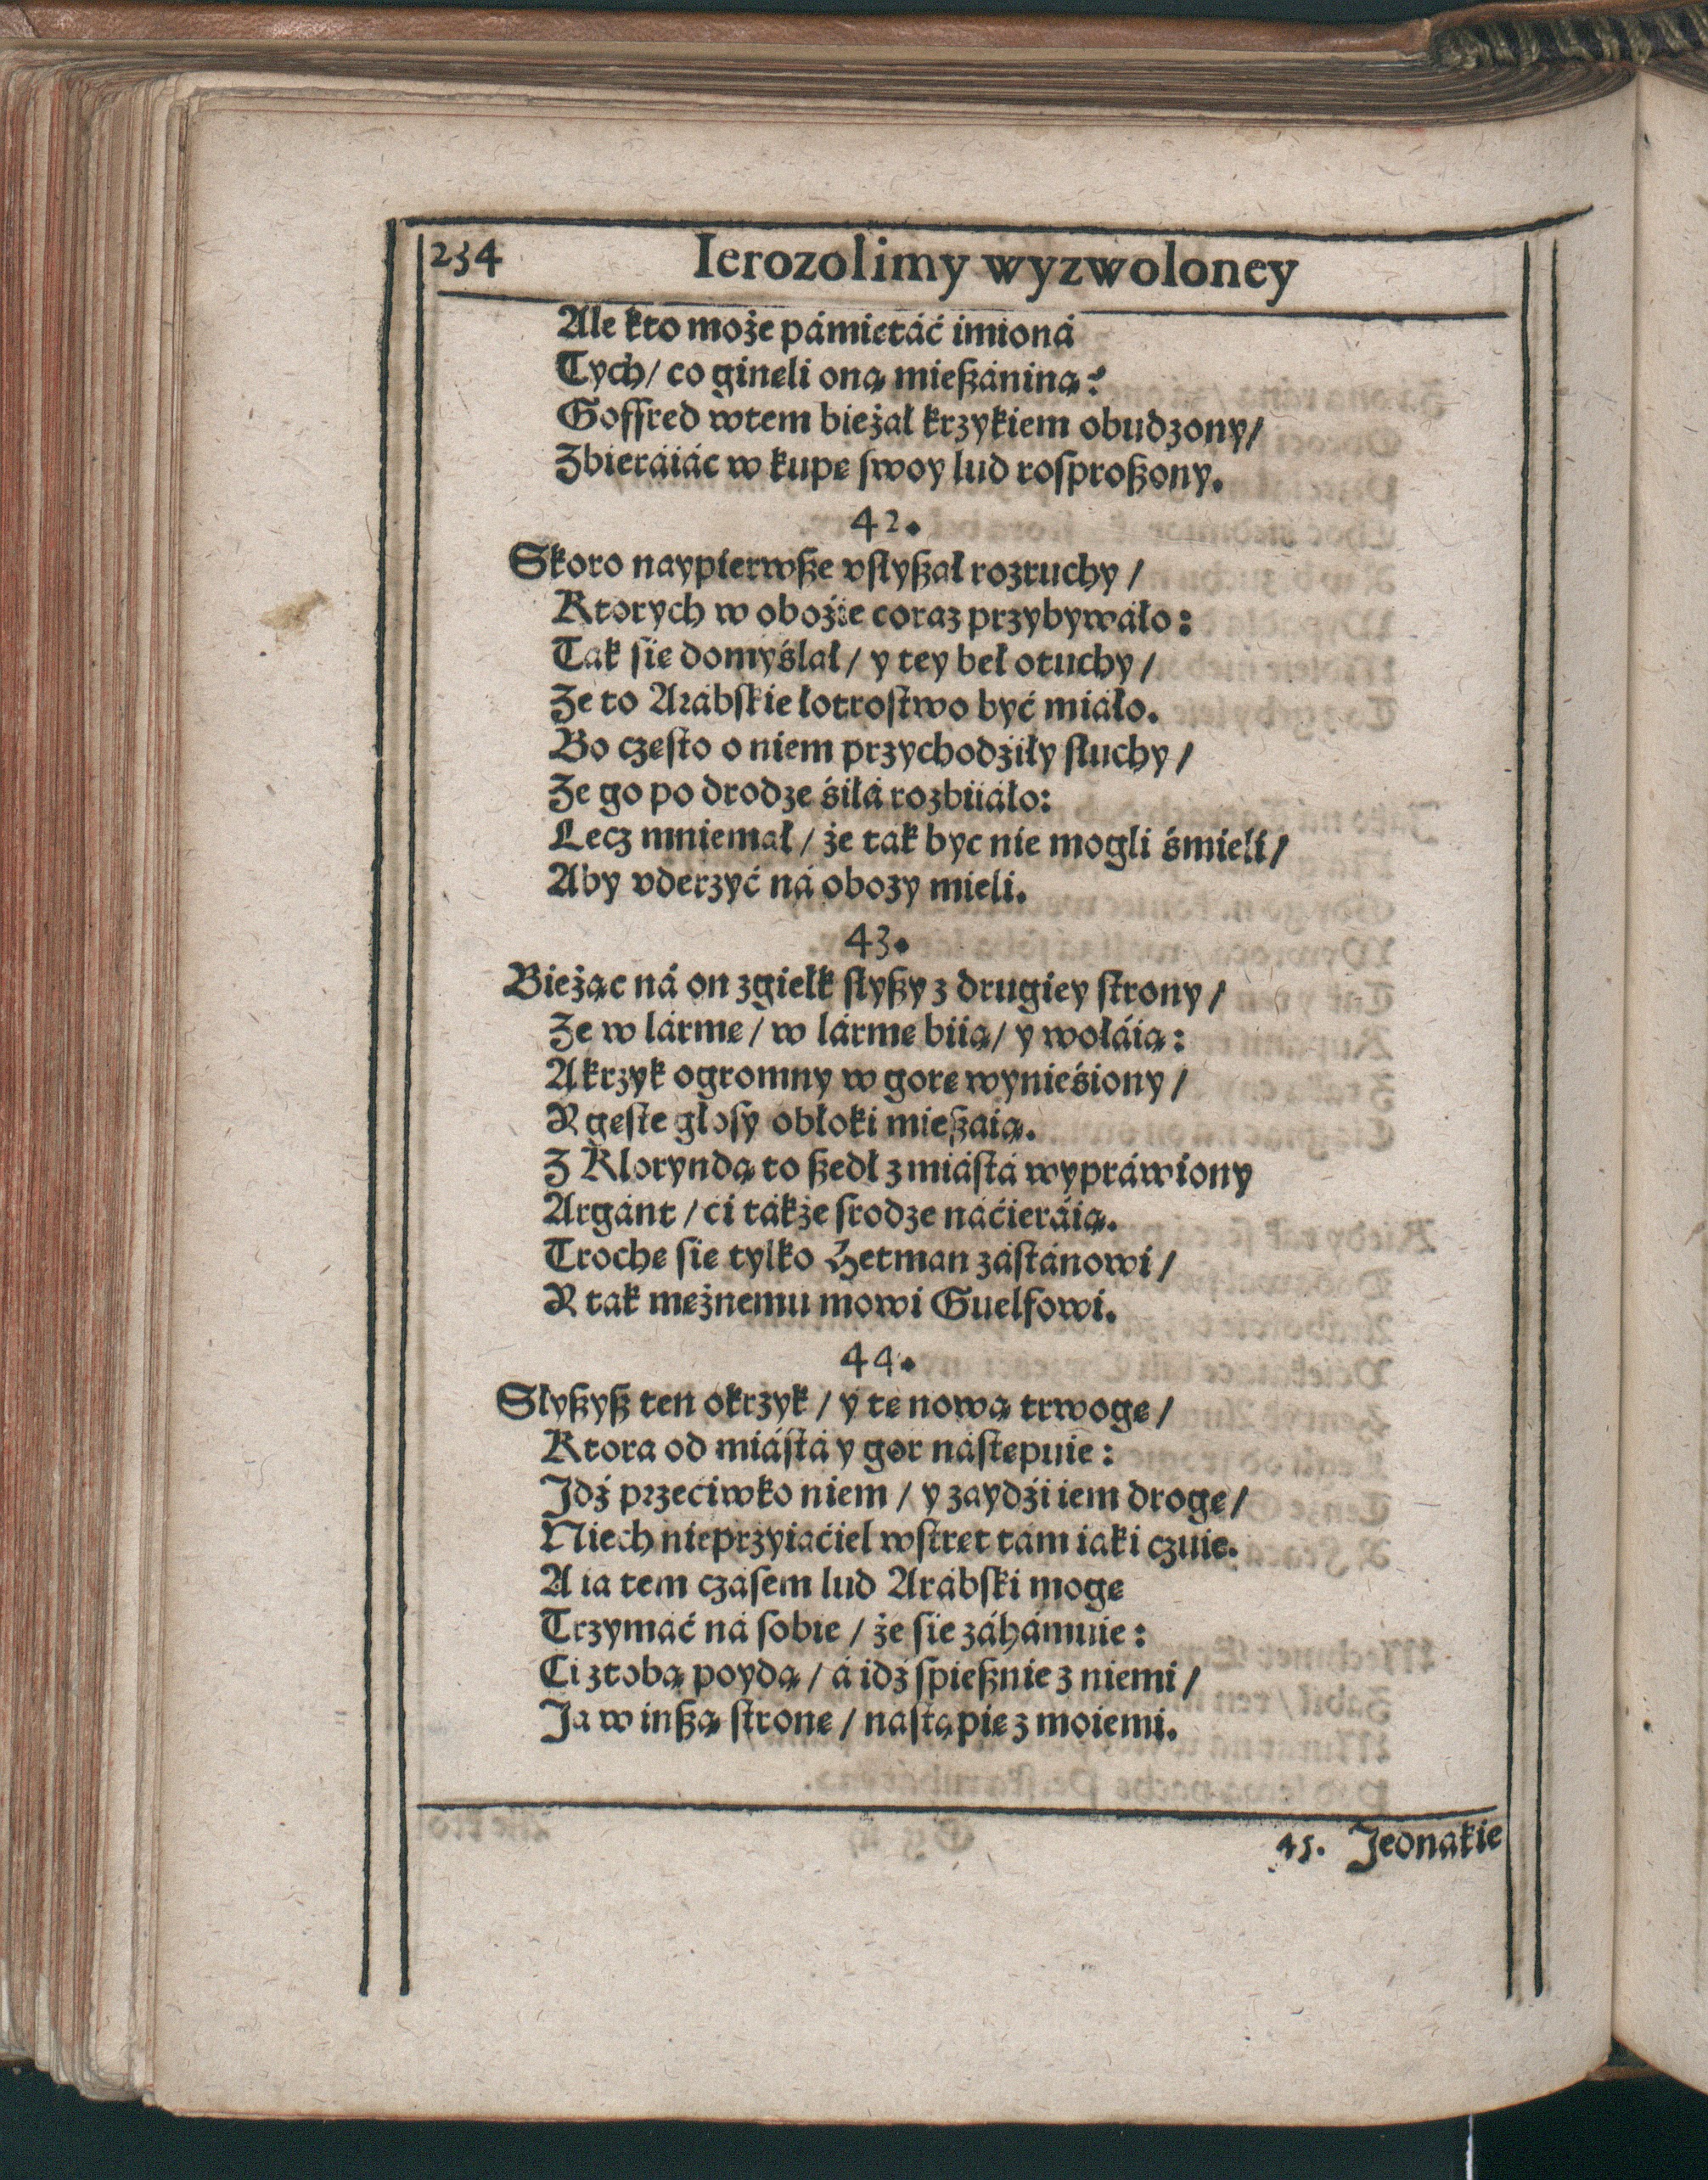 234 Ierozolimy wyzwoloney
Ale kto może pámietáć imioná
Tych/ co gineli oną mießániną?
Goffred wtem bieżał krzykiem obudzony/
Zbieráiác w kupę swoy lud rosproßony.
42.
Skoro naypierwße vslyßał rozruchy /
Ktorych w oboźie coraz przybywáło:
Tak sie domyślał / y tey beł otuchy /
Ze to Arábskie łotrostwo być miáło.
Bo często o niem przychodźiły słuchy /
Ze go po drodze śiłá rozbiiáło:
Lecz mniemał / że tak byc nie mogli śmieli /
Aby vderzyć ná obozy mieli.
43.
Bieżąc ná on zgiełk słyßy z drugiey strony /
Ze w lárme / w lárme biią/ y wołáią:
A krzyk ogromny w gorę wynieśiony /
Y gęste głosy obłoki mießaią.
Z Kloryndą to ßedł z miástá wypráwiony
Argánt / ci tákże srodze náćieráią.
Troche sie tylko Hetman zástánowi /
Y tak mężnemu mowi Guelfowi.
44.
Słyßyß ten okrzyk / y tę nową trwogę /
Ktora od miástá y gor nástępuie:
Jdź przećiwko niem / y zaydźi iem drogę /
Niech nieprzyiaćiel wstręt tám iaki czuie.
A ia tem czásem lud Arábski mogę
Trzymáć ná sobie / że się záhámuie:
Ci z tobą poydą / á idź spießnie z niemi /
Ja w inßą stronę / nastąpię z moiemi.
45. Jednakie